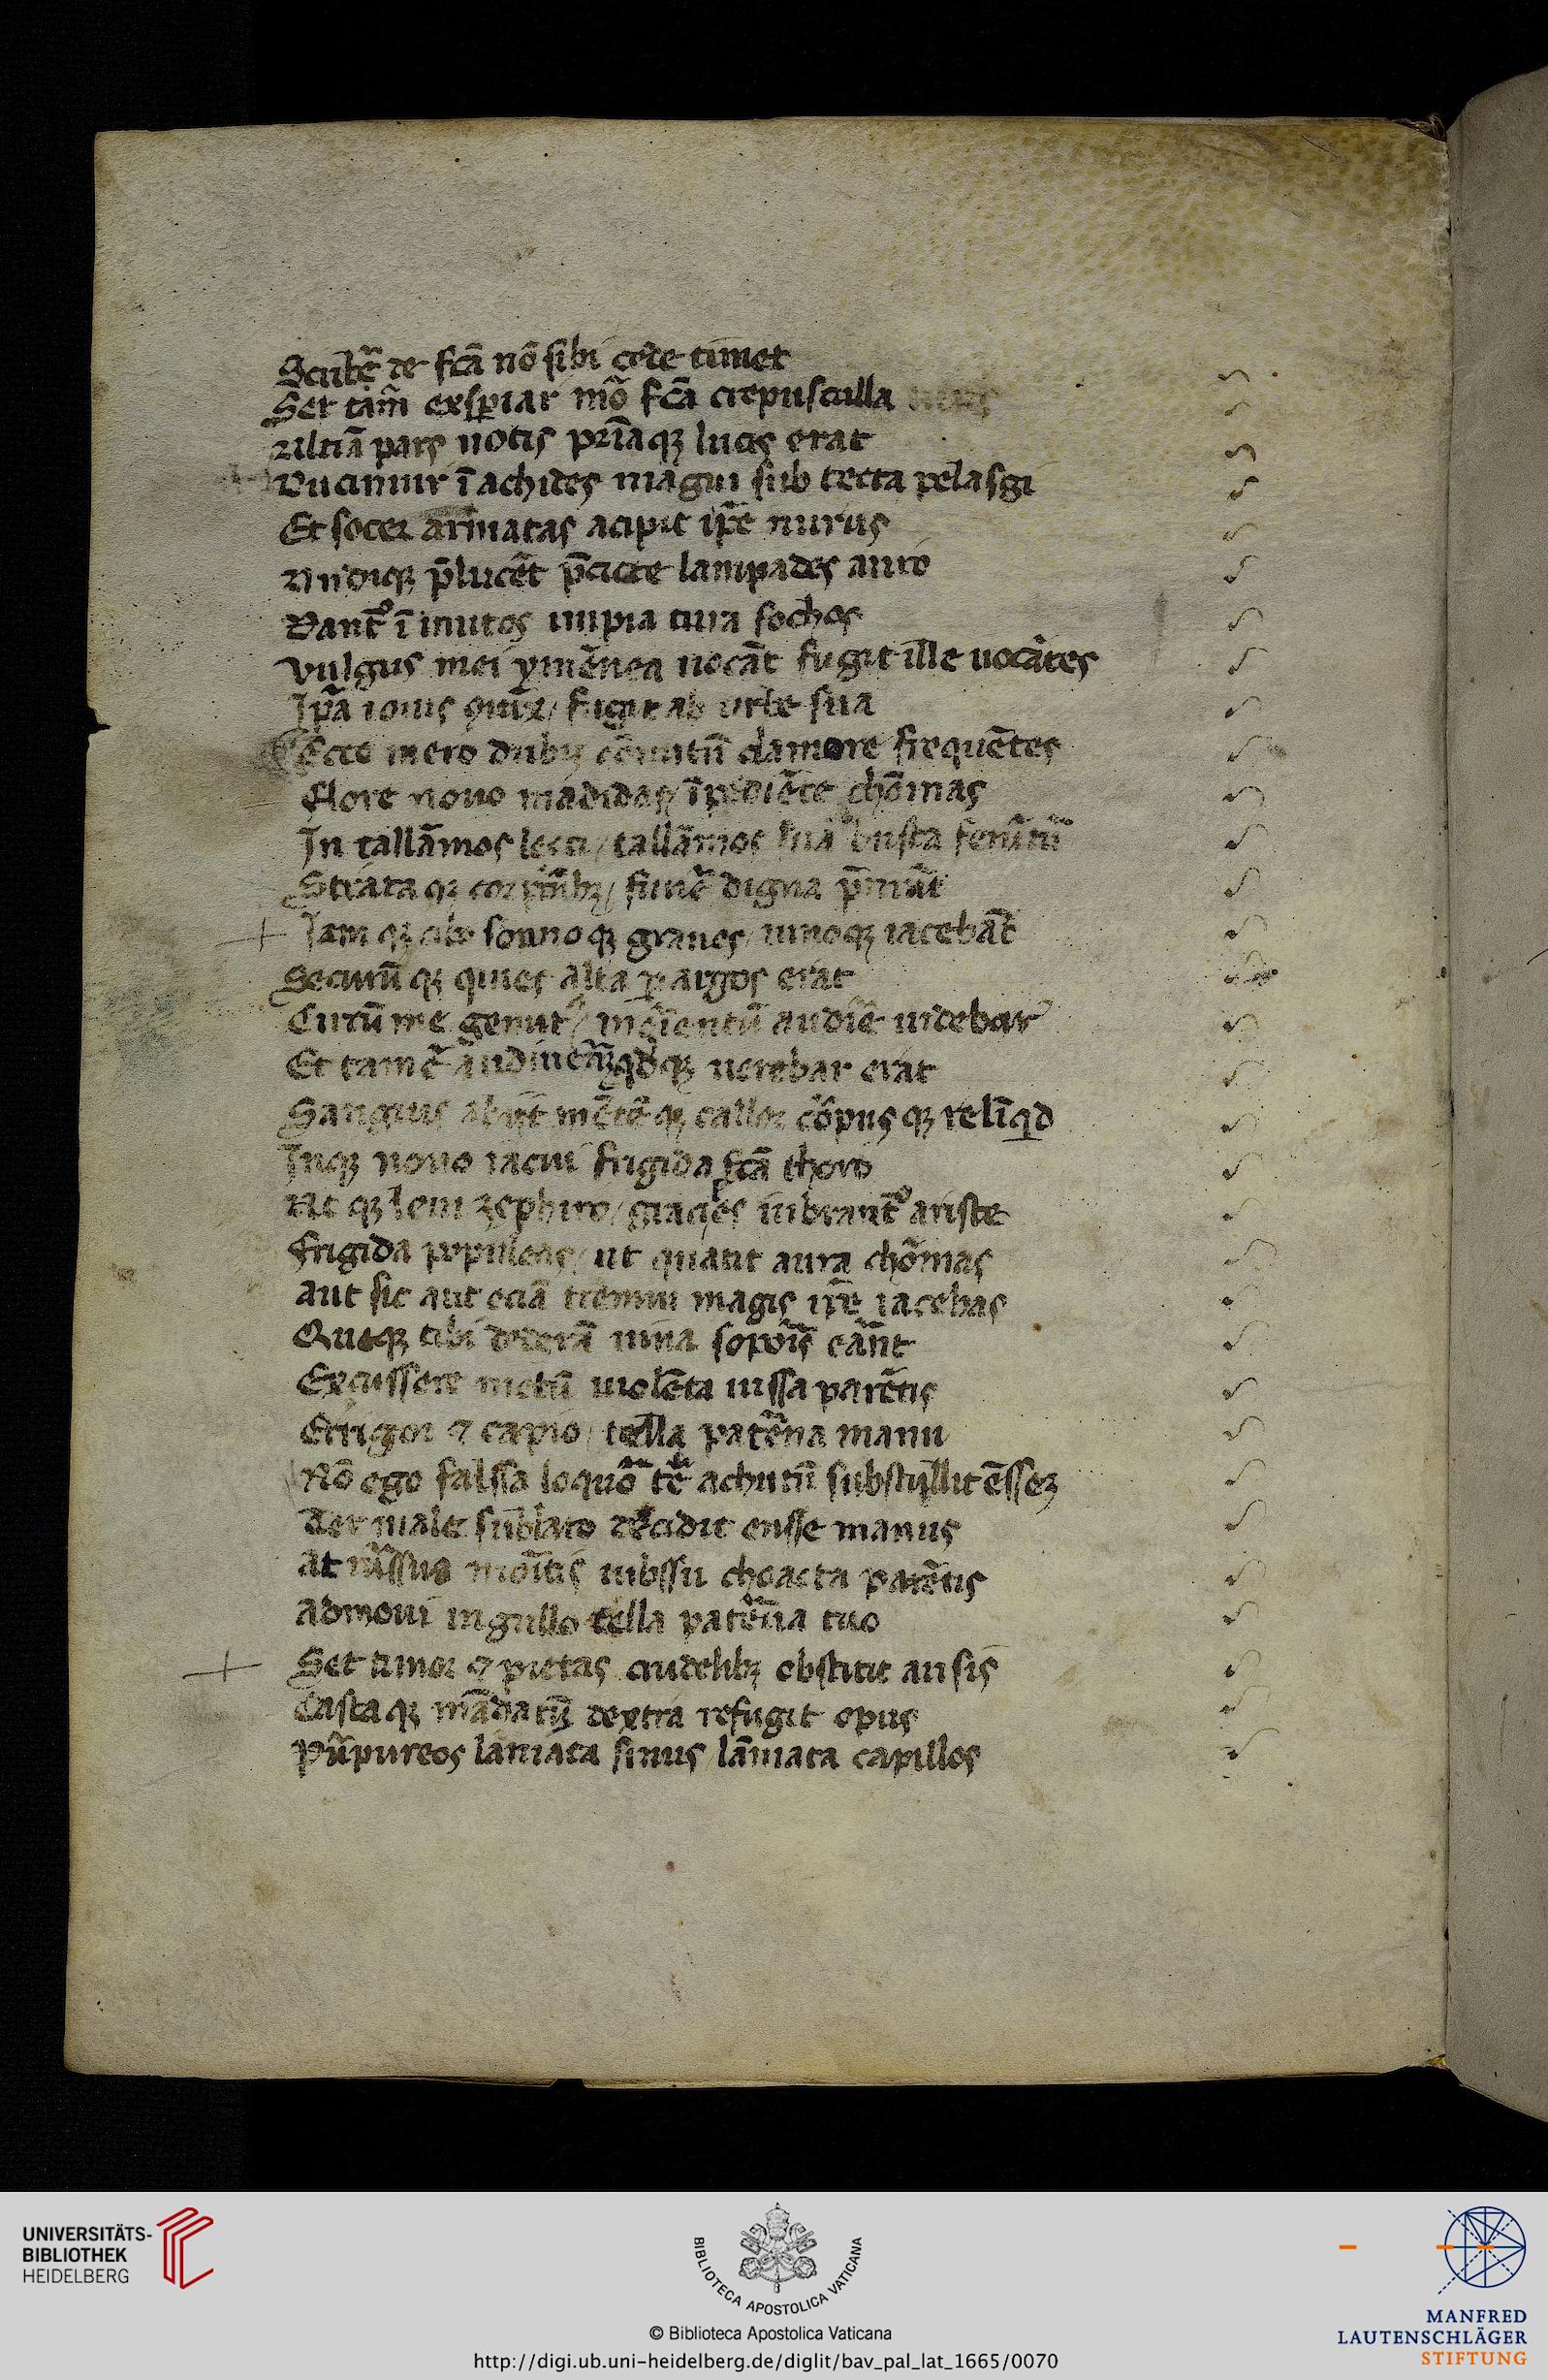 Scribe͂ de fc̄a nō sibi cede timet
Set tam̄ expͥar mō fc̄a crepusculla
Ultiā pars notis pr̄iaqꝫ lucis erat
Ducimur ī achides magni sub tecta pelasgi
Et socer armatas acipit ip̄e nurus
Undiqꝫ p̄lucēt p̄cicte lampades auro
Dant᷒ ī inuitos impia tura fochos
Vulgus mei ymēnea uocāt fugit ille uocātes
Ip̄a iouis fugit ab urbe sua
Ecce mero dubij cōmitū clamore frequētes
Flore nouo madidas īpediēte chōmas
In tallāmos leti / tallāmos sua busta ferūtū
Strataqꝫ corpībꝫ / funē digna p̄mūt
Iamqꝫ cibo somnoqꝫ graues / uinoqꝫ iacebāt
Securūqꝫ quies alta ꝑ argos erat
Circū me gemitꝰ / moriētū audire uidebar
Et tamē audiuerāqꝫ uerebar erat
Sanguis abijt mētēqꝫ callor cōpusqꝫ relīqͥd
Inqꝫ nouo iacui frigida fc̄a thoro
Ut qꝫ leui zephiro / graciles uibrant᷒ ariste
Frigida populeas / ut quatit aura chōmas
aut sic aut eciā tremui magis ip̄e iacebas
Quaqꝫ tibi dederā uina soporis erāt
Excussere metū uiolēta iussa parētis
Erigor ⁊ capio / tella patēna manu
Nō ego falssa loquor tē achutū substullit ēssez
Ter male sublato recidit ensse manus
at moītis iubssu choacta parētis
admoui iugullo tella patēna tuo
Set timor ⁊ pietas crudelibꝫ obstitit ausis
Castaqꝫ mādatū dextra refugit opus
Pūpureos laniata sinus laniata capillos
UNIVERSITÄTS-
BIBLIOTHEK
HEIDELBERG
BIBLIOTECA APOSTOLICA VATICANA
© Biblioteca Apostolica Vaticana
http://digi.ub.uni-heidelberg.de/diglit/bav_pal_lat_1665/0070
MANFRED
LAUTENSCHLÄGER
STIFTUNG